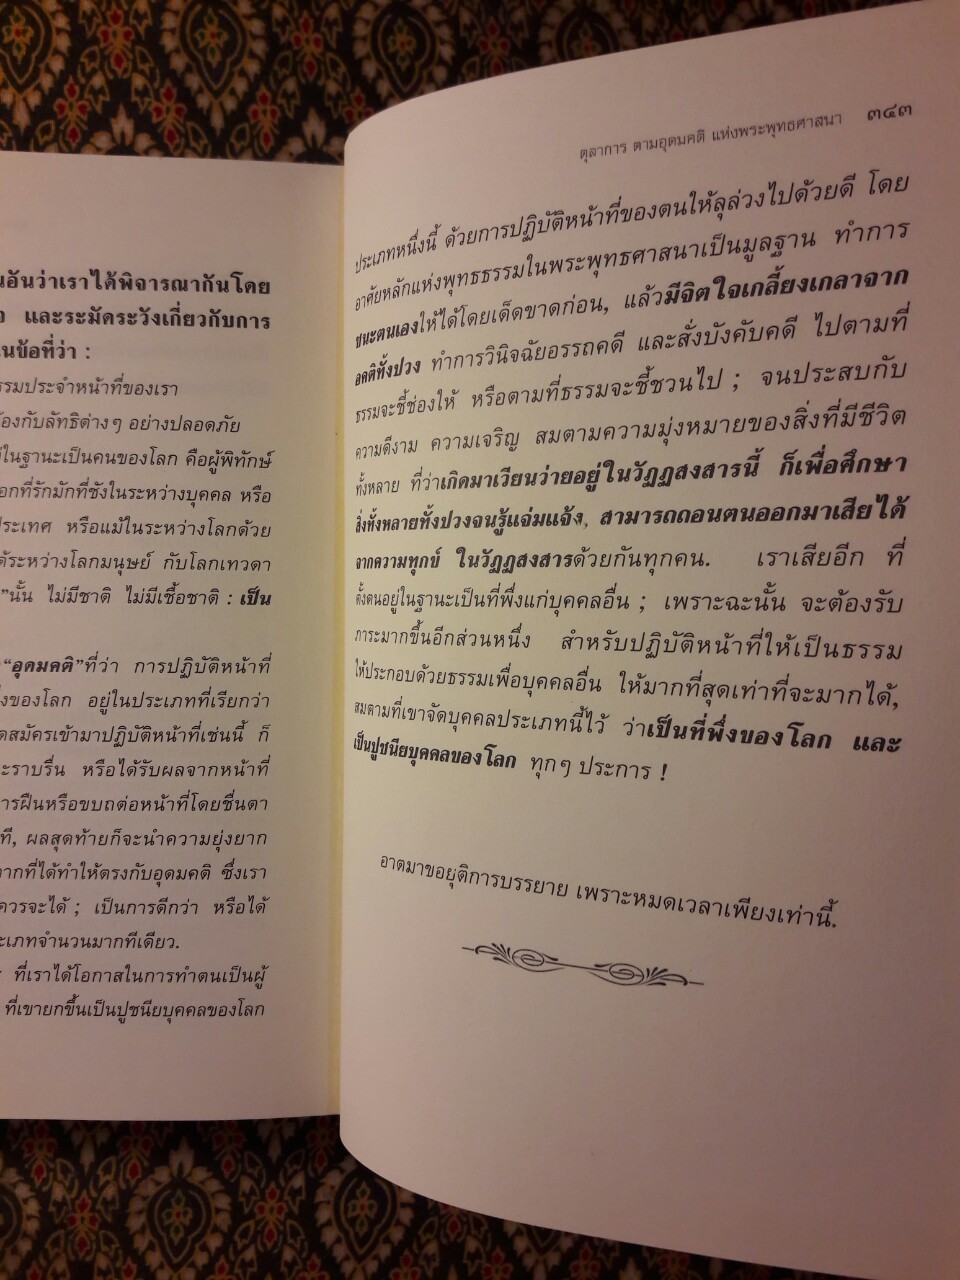 นอันว่าเราได้พิจารณากันโดย
และระมัดระวังเกี่ยวกับการ
นข้อที่ว่า :
รรมประจำหน้าที่ของเรา
้องกับลัทธิต่างๆ อย่างปลอดภัย
ในฐานะเป็นคนของโลก คือผู้พิทักษ์
อกที่รักมักที่ชังในระหว่างบุคคล หรือ
ประเทศ หรือแม้ในระหว่างโลกด้วย
ด้ระหว่างโลกมนุษย์ กับโลกเทวดา
”นั้น ไม่มีชาติ ไม่มีเชื้อชาติ : เป็น
“อุดมคติ”ที่ว่า การปฏิบัติหน้าที่
ของโลก อยู่ในประเภทที่เรียกว่า
สมัครเข้ามาปฏิบัติหน้าที่เช่นนี้ ก็
ะราบรื่น หรือได้รับผลจากหน้าที่
การฝืนหรือขบถต่อหน้าที่โดยชื่นตา
ที, ผลสุดท้ายก็จะนำความยุ่งยาก
จากที่ได้ทำให้ตรงกับอุดมคติ ซึ่งเรา
ควรจะได้ ; เป็นการดีกว่า หรือได้
ะเภทจำนวนมากทีเดียว.
ที่เราได้โอกาสในการทำตนเป็นผู้
ที่เขายกขึ้นเป็นปูชนียบุคคลของโลก
ตุลาการ ตามอุดมคติ แห่งพระพุทธศาสนา ๓๔๓
ประเภทหนึ่งนี้ ด้วยการปฏิบัติหน้าที่ของตนให้ลุล่วงไปด้วยดี โดย
อาศัยหลักแห่งพุทธธรรมในพระพุทธศาสนาเป็นมูลฐาน ทำการ
ชนะตนเองให้ได้โดยเด็ดขาดก่อน, แล้วมีจิตใจเกลี้ยงเกลาจาก
อคติทั้งปวง ทำการวินิจฉัยอรรถคดี และสั่งบังคับคดี ไปตามที่
ธรรมจะชี้ช่องให้ หรือตามที่ธรรมจะชี้ชวนไป ; จนประสบกับ
ความดีงาม ความเจริญ สมตามความมุ่งหมายของสิ่งที่มีชีวิต
ทั้งหลาย ที่ว่าเกิดมาเวียนว่ายอยู่ในวัฏฏสงสารนี้ ก็เพื่อศึกษา
สิ่งทั้งหลายทั้งปวงจนรู้แจ่มแจ้ง, สามารถถอนตนออกมาเสียได้
จากความทุกข์ ในวัฏฏสงสารด้วยกันทุกคน. เราเสียอีก ที่
ตั้งตนอยู่ในฐานะเป็นที่พึ่งแก่บุคคลอื่น ; เพราะฉะนั้น จะต้องรับ
ภาระมากขึ้นอีกส่วนหนึ่ง สำหรับปฏิบัติหน้าที่ให้เป็นธรรม
ให้ประกอบด้วยธรรมเพื่อบุคคลอื่น ให้มากที่สุดเท่าที่จะมากได้,
สมตามที่เขาจัดบุคคลประเภทนี้ไว้ ว่าเป็นที่พึ่งของโลก และ
เป็นปูชนียบุคคลของโลก ทุกๆ ประการ !
อาตมาขอยุติการบรรยาย เพราะหมดเวลาเพียงเท่านี้.